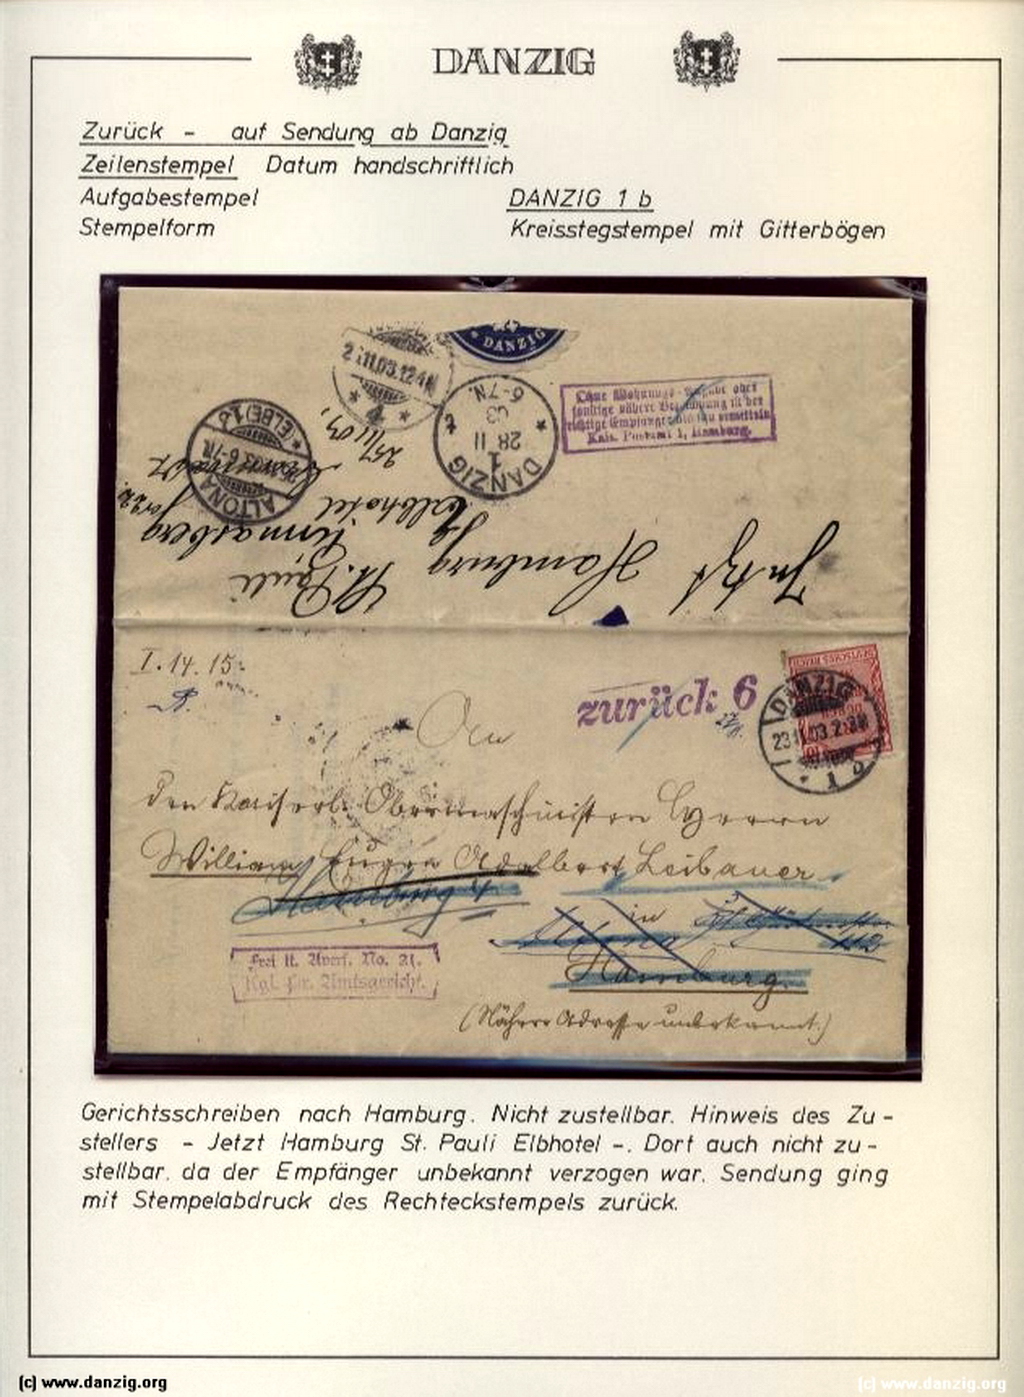 DANZIG
Zurück - auf Sendung ab Danzig
Zeilenstempel Datum handschriftlich
Aufgabestempel DANZIG 1 b
Stempelform Kreisstegstempel mit Gitterbögen
DANZIG
11.03.12-1N
* 4 *
6-7N.
03
28 11
1
DANZIG
Ohne Wohnungs-Angabe oder
sonstige nähere Bezeichnung ist der
richtige Empfänger nicht zu ermitteln
Kais. Postamt 1, Hamburg.
ALTONA (ELBE) 1
6-7N.
25/11 03
Elbhotel
Jetzt Hamburg St. Pauli
I. 14. 15
zurück 6
DEUTSCHES REICH
DANZIG
23.11.03.2-3N
* 1 b
An
den Kaiserl. Obermaschinisten Herrn
William Eugen Adalbert Leibauer
Hamburg 4
in
112
Hamburg.
Frei lt. Avers. No. 21.
Kgl. Pr. Amtsgericht.
(Nähere Adresse unbekannt.)
Gerichtsschreiben nach Hamburg. Nicht zustellbar. Hinweis des Zu -
stellers - Jetzt Hamburg St. Pauli Elbhotel -. Dort auch nicht zu -
stellbar. da der Empfänger unbekannt verzogen war. Sendung ging
mit Stempelabdruck des Rechteckstempels zurück.
(c) www.danzig.org
(c) www.danzig.org